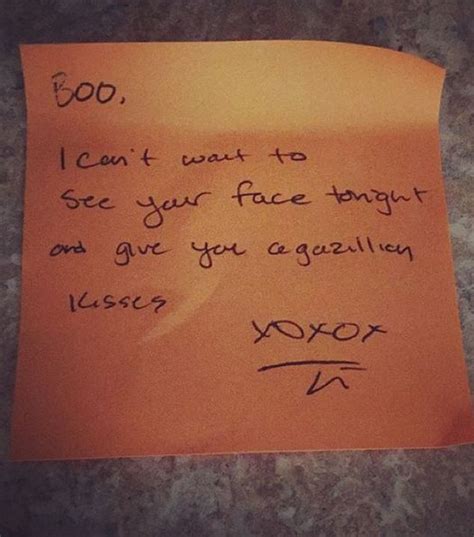 Boo,
I can't wait to
see your face tonight
and give you a gazillion
kisses
XOXOX